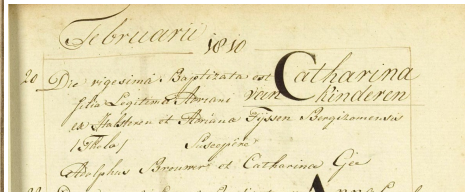 Februarii 1810
20 Die vigesima Baptizata est Catharina
filia Legitima Adriani van Kinderen
ex Halsteren et Adriana Tijssen Bergizomensis
/Thola/ Susceperé
Adolphus Brouwer et Catharina